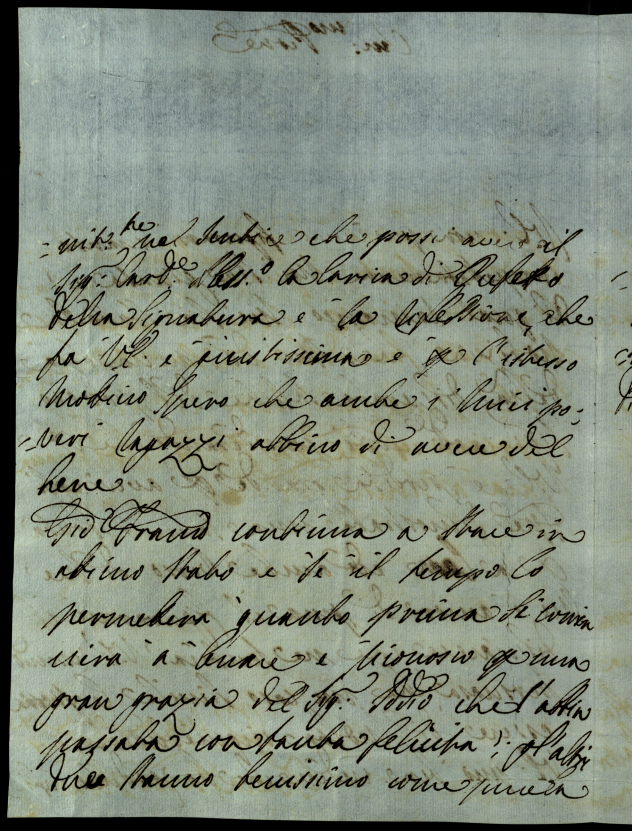 =nità nel sentire che possi avere il
Sig.r Card.le Aless.o la carica di Prefetto
della Signatura e la riflessione, che
fa VE. è giustissima e p l'istesso
motivo spero che anche i miei po=
=veri ragazzi abbino di avere del
bene
Gio Franco continua a stare in
otimo stato e se il tempo lo
permeterà quanto prima si comin
cierà a levare e riconosco p una
gran grazia del Sig.r Iddio che l'abbia
passata con tanta felicità; gl'altri
due stanno benissimo come pure